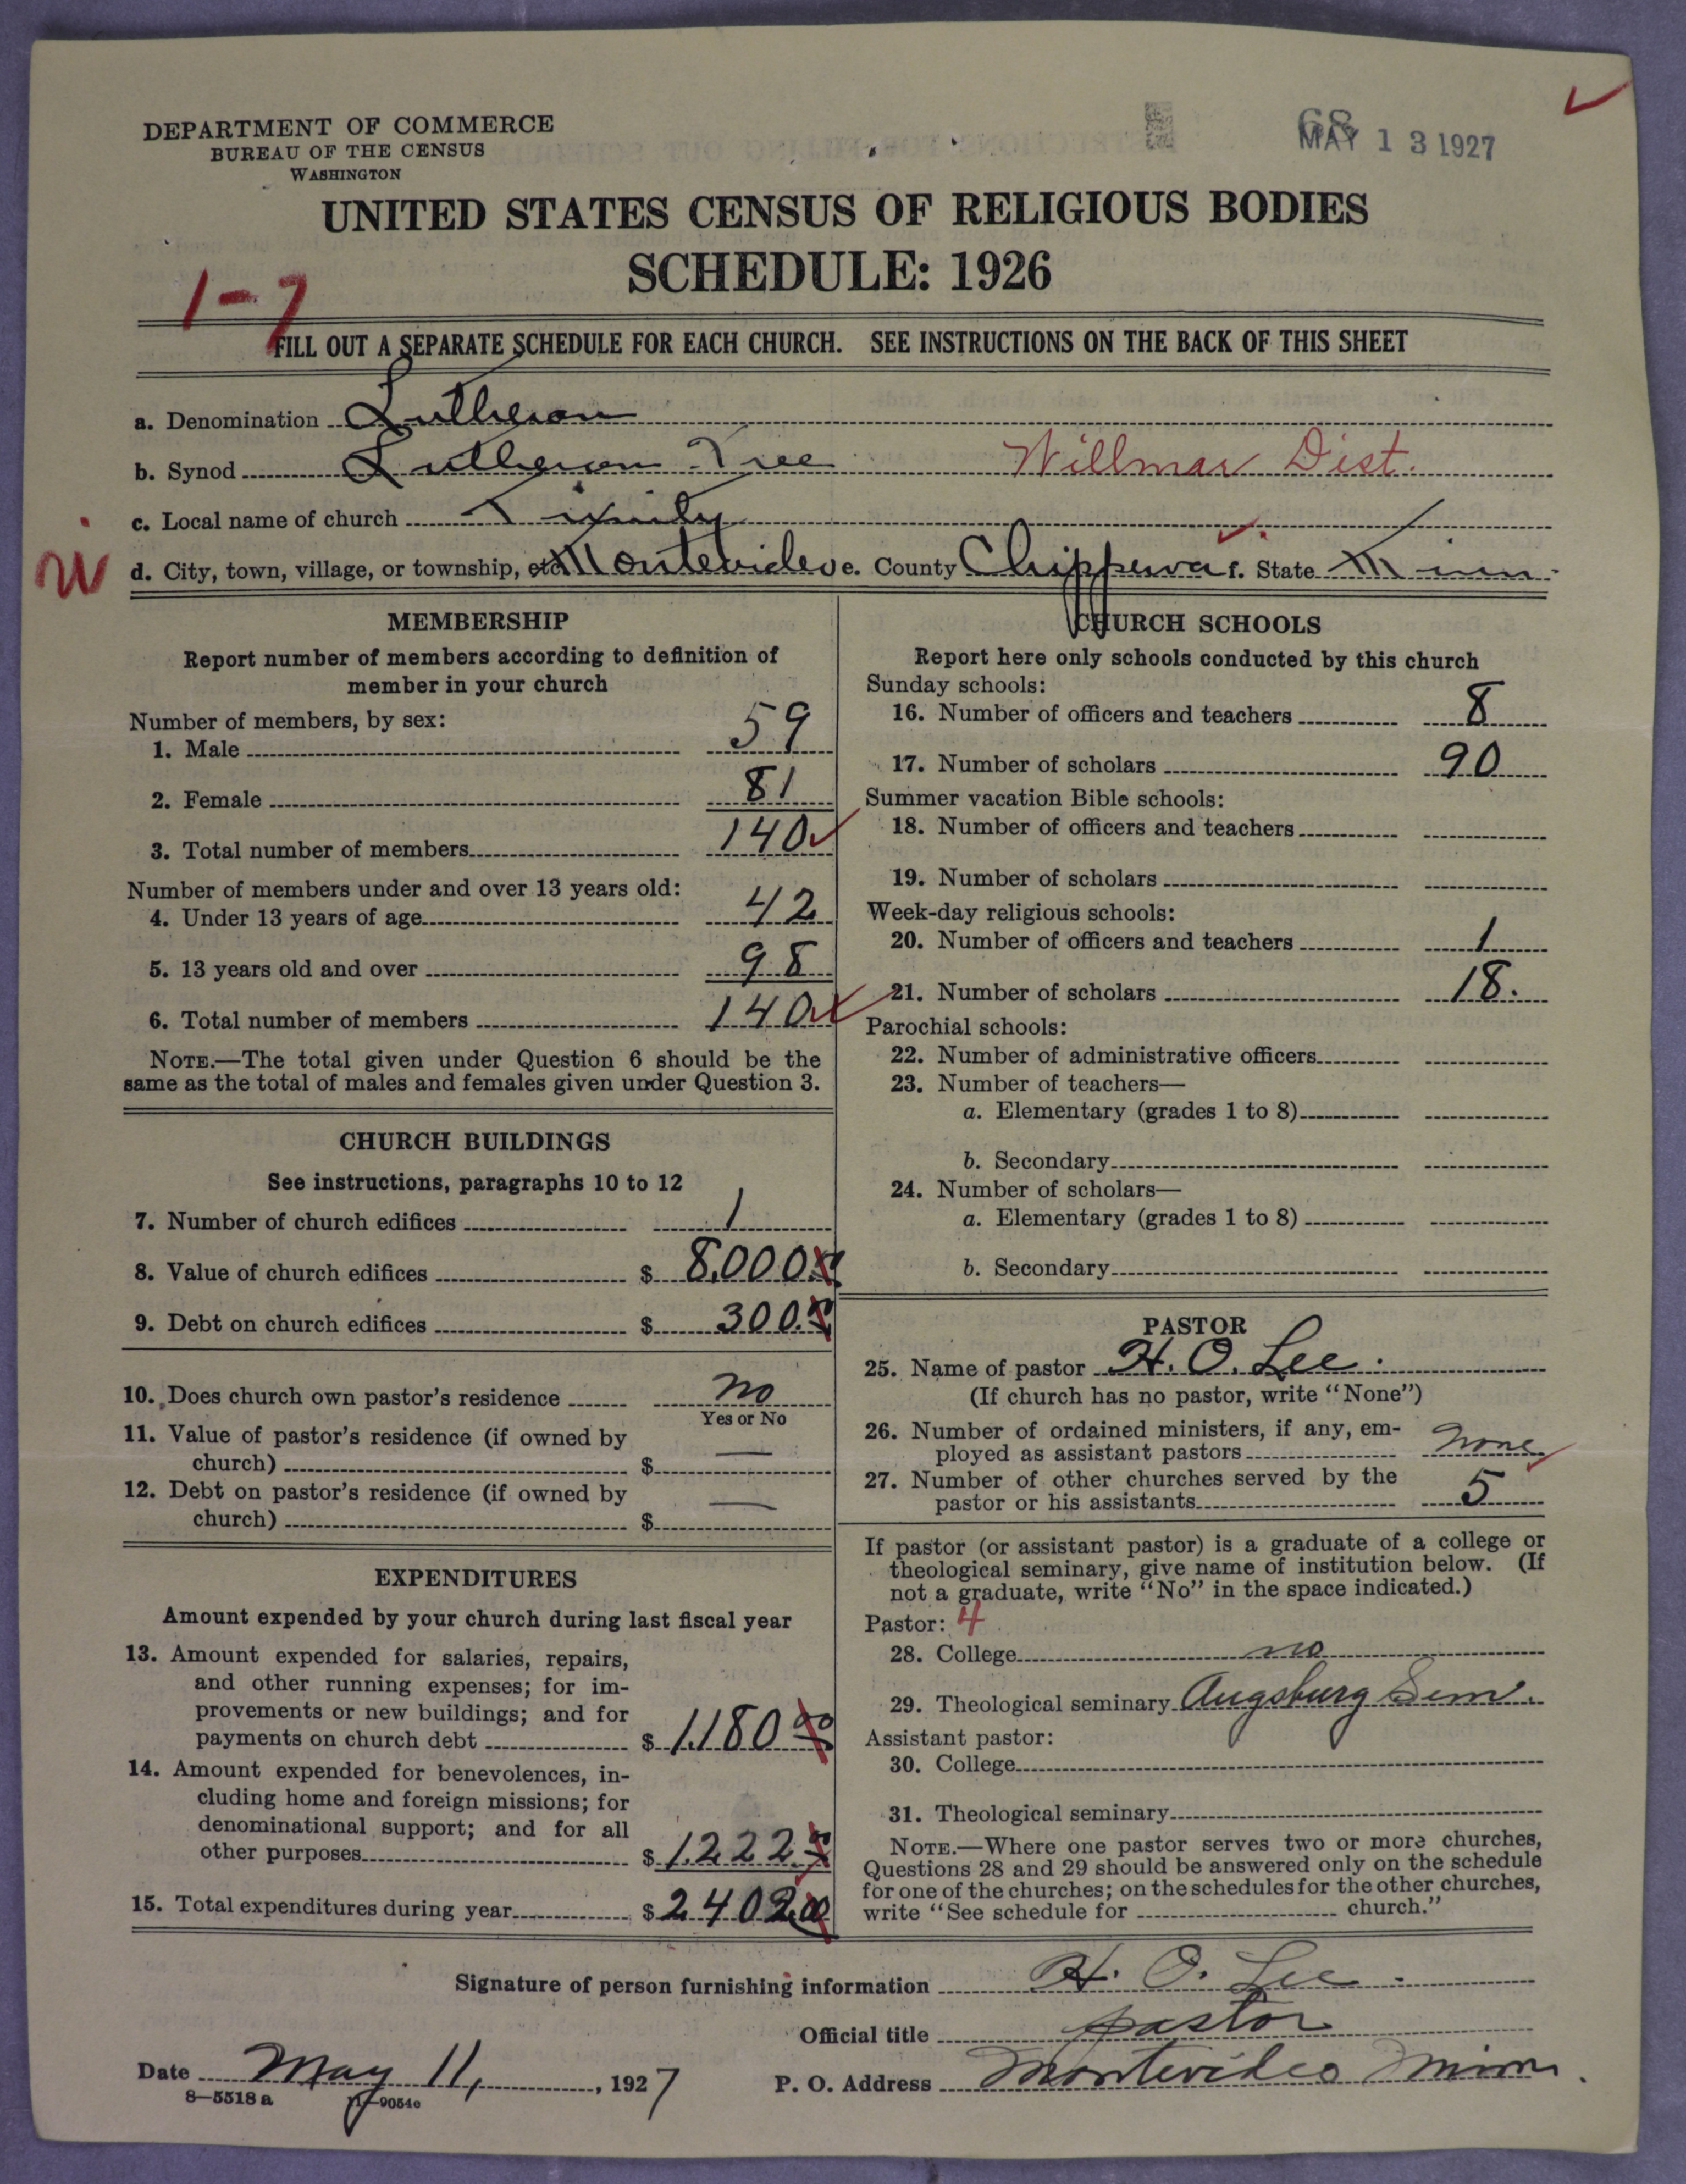 DEPARTMENT OF COMMERCE
BUREAU OF THE CENSUS
WASHINGTON
68
MAY 13 1927
UNITED STATES CENSUS OF RELIGIOUS BODIES
SCHEDULE: 1926
1-7
FILL OUT A SEPARATE SCHEDULE FOR EACH CHURCH. SEE INSTRUCTIONS ON THE BACK OF THIS SHEET
a. Denomination Lutheran
b. Synod Lutheran Free Willmar Dist.
c. Local name of church Trinity
d. City, town, village, or township, etc. Montevideo e. County Chippewa f. State Minn.
MEMBERSHIP
Report number of members according to definition of
member in your church
Number of members, by sex:
1. Male 59
2. Female 81
3. Total number of members 140
Number of members under and over 13 years old:
4. Under 13 years of age 42
5. 13 years old and over 98
6. Total number of members 140
NOTE.—The total given under Question 6 should be the
same as the total of males and females given under Question 3.
CHURCH BUILDINGS
See instructions, paragraphs 10 to 12
7. Number of church edifices 1
8. Value of church edifices $ 8,000
9. Debt on church edifices $ 300.
10. Does church own pastor's residence no
Yes or No
11. Value of pastor's residence (if owned by
church) $ —
12. Debt on pastor's residence (if owned by
church) $ —
EXPENDITURES
Amount expended by your church during last fiscal year
13. Amount expended for salaries, repairs,
and other running expenses; for im-
provements or new buildings; and for
payments on church debt $ 1180 00
14. Amount expended for benevolences, in-
cluding home and foreign missions; for
denominational support; and for all
other purposes $ 1222
15. Total expenditures during year $ 2402.00
CHURCH SCHOOLS
Report here only schools conducted by this church
Sunday schools:
16. Number of officers and teachers 8
17. Number of scholars 90
Summer vacation Bible schools:
18. Number of officers and teachers
19. Number of scholars
Week-day religious schools:
20. Number of officers and teachers 1
21. Number of scholars 18.
Parochial schools:
22. Number of administrative officers
23. Number of teachers—
a. Elementary (grades 1 to 8)
b. Secondary
24. Number of scholars—
a. Elementary (grades 1 to 8)
b. Secondary
PASTOR
25. Name of pastor H. O. Lee.
(If church has no pastor, write "None")
26. Number of ordained ministers, if any, em-
ployed as assistant pastors none
27. Number of other churches served by the
pastor or his assistants 5
If pastor (or assistant pastor) is a graduate of a college or
theological seminary, give name of institution below. (If
not a graduate, write "No" in the space indicated.)
Pastor: 4
28. College no
29. Theological seminary Augsburg Sem.
Assistant pastor:
30. College
31. Theological seminary
NOTE.—Where one pastor serves two or more churches,
Questions 28 and 29 should be answered only on the schedule
for one of the churches; on the schedules for the other churches,
write "See schedule for church."
Signature of person furnishing information H. O. Lee.
Official title pastor
Date May 11, 1927
P. O. Address Montevideo Minn.
8—5518 a